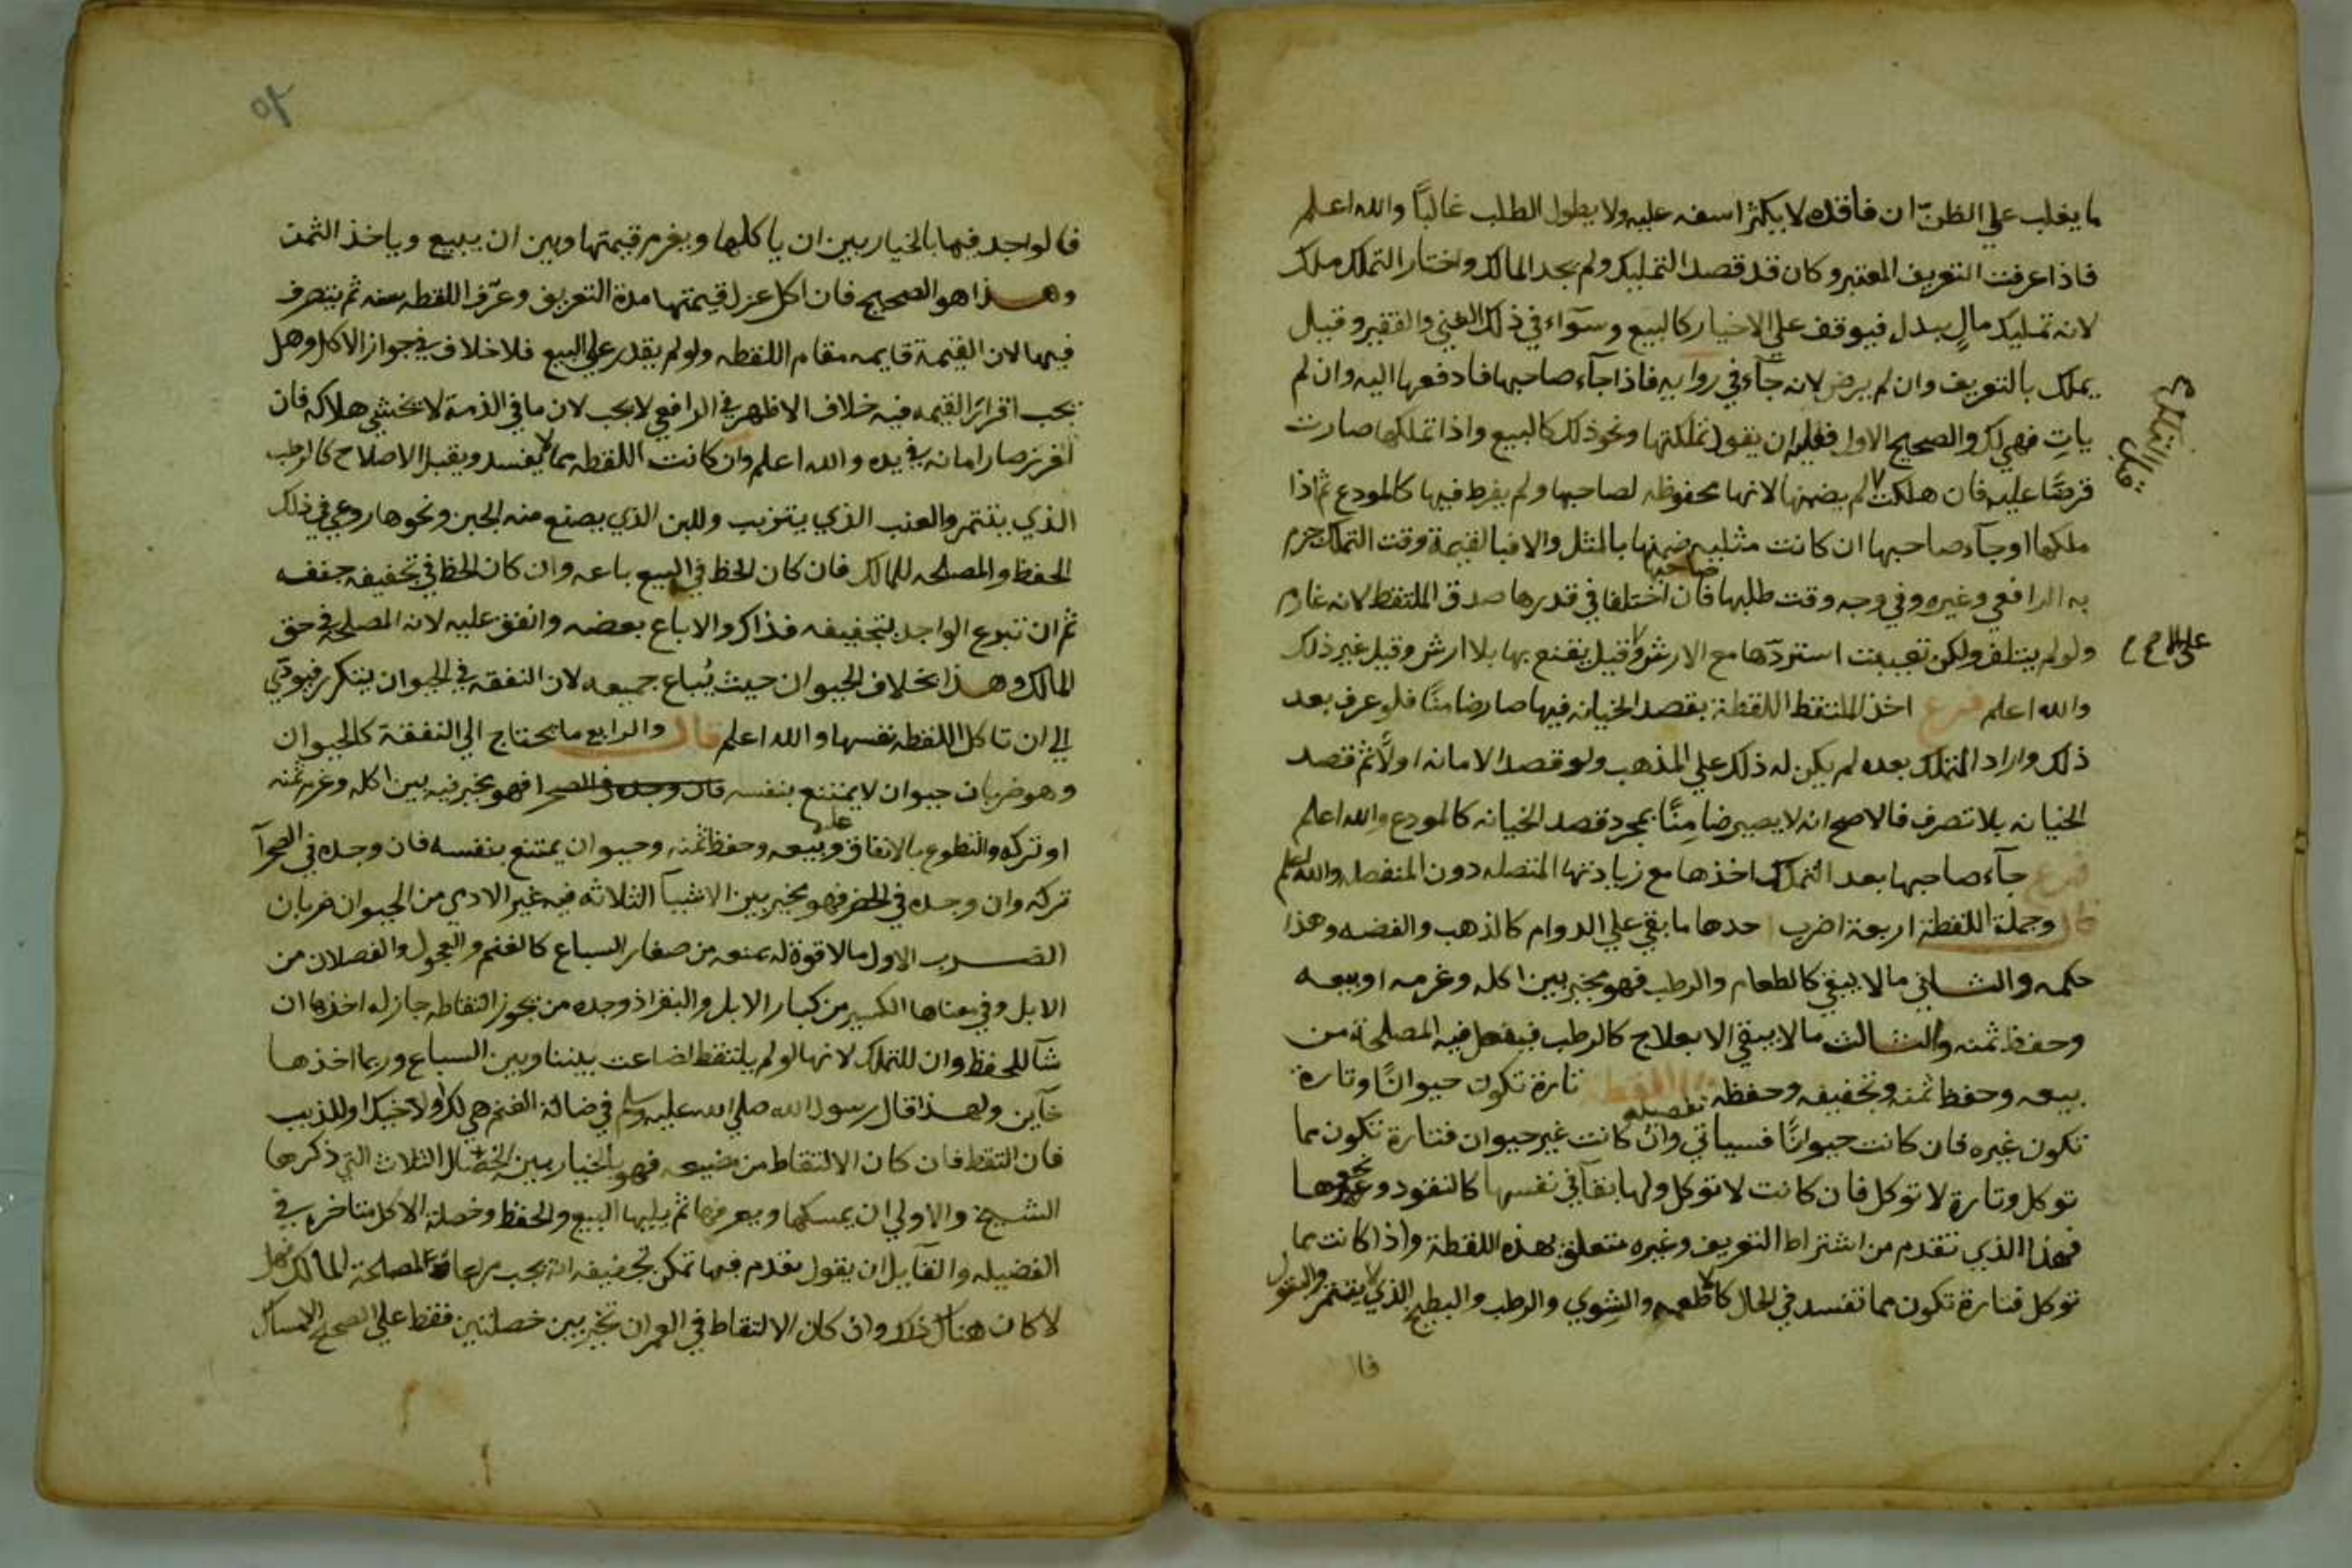 ما يغلب علي الظن ان فاقده لا يكثر اسفه عليه ولا يطول الطلب غالبًا والله اعلم
فاذا عرفت التعريف المعتبر وكان قد قصد التمليك ولم يجد المالك واختار التملك ملك
لانه تمليك مالٍ ببدل فيوقف علي الاختيار كالبيع وسوآء في ذلك الغني والفقير وقيل
يملك بالتعريف وان لم يرض لانه جآء في روايه فاذا جآء صاحبها فادفعها اليه وان لم
ياتِ فهي لك والصحيح الاول فعليه ان يقول تملكتها ونحو ذلك كالبيع واذا تملكها صارت
قرضًا عليه فان هلكت لم يضمنها لانها محفوظه لصاحبها ولم يفرط فيها كالمودع ثم اذا
قبل التملك
ملكها وجآء صاحبها ان كانت مثليه ضمنها بالمثل والا فبالقيمة وقت التملك جزم
به الرافعي وغيره وفي وجه وقت طلبها فان اختلفا في قدرها صدق الملتقط لانه غارم
صاحبها
ولو لم يتلف ولكن تعيبت استردّها مع الارش وقيل يقنع بها بلا ارش وقيل غير ذلك
علي الاصح
والله اعلم فرع اخذ الملتقط اللقطة بقصد الخيانه فيها صار ضامنًا فلو عرف بعد
ذلك واراد التملك بعده لم يكن له ذلك علي المذهب ولو قصد الامانه اولًا ثم قصد
الخيانه بلا تصرف فالاصح انه لا يصير ضامنًا بمجرد قصد الخيانه كالمودع والله اعلم
فرع جآء صاحبها بعد التملك اخذها مع زيادتها المتصله دون المنفصله والله اعلم
قال وجملة اللقطة اربعة اضرب احدها ما بقي علي الدوام كالذهب والفضه وهذا
حكمه والثاني ما لا يبقي كالطعام والرطب فهو مخير بين اكله وغرمه او بيعه
وحفظ ثمنه والثالث ما لا يبقي الا بعلاج كالرطب فيفعل فيه المصلحة من
بيعه وحفظ ثمنه وتجفيفه وحفظه اللقطة تارة تكون حيوانًا وتارة
تكون غيره فان كانت حيوانًا فسياتي تفصيله وان كانت غير حيوان فتارة تكون مما
توكل وتارة لا توكل فان كانت لا توكل ولها بقآ في نفسها كالنقود ونحوها
فهذا الذي تقدم من اشتراط التعريف وغيره متعلق بهذه اللقطة واذا كانت مما
توكل فتارة تكون مما تفسد في الحال كالاطعمه والشوي والرطب والبطيخ الذي لا يتتمر والبقول
فا
فالواجد فيها بالخيار بين ان ياكلها ويغرم قيمتها وبين ان يبيع وياخذ الثمن
وهذا هو الصحيح فان اكل عزل قيمتها مدة التعريف وعرّف اللقطه سنه ثم يتصرف
فيها لان القيمة قايمه مقام اللقطه ولو لم يقدر علي البيع فلا خلاف في جواز الاكل وهل
يجب افراز القيمه فيه خلاف الاظهر في الرافعي لا يجب لان ما في الذمة لا يخشي هلاكه فان
افرز صار امانه في يده والله اعلم وان كانت اللقطه مما لا يفسد ويقبل الاصلاح كالرطب
الذي يتتمر والعنب الذي يتزبب واللبن الذي يصنع منه الجبن ونحوها روعي في ذلك
الحفظ والمصلحه للمالك فان كان الحظ في البيع باعه وان كان الحظ في تجفيفه جففه
ثم ان تبرع الواجد بتجفيفه فذاك والا باع بعضه وانفق عليه لانه المصلحة في حق
المالك وهذا بخلاف الحيوان حيث يُباع جميعه لان النفقه في الحيوان يتكرر فيودّي
الي ان تاكل اللقطه نفسها والله اعلم قال والرابع ما يحتاج الي النفقة كالحيوان
وهو ضربان حيوان لا يمتنع بنفسه فان وجده في الصحرا فهو يخير فيه بين اكله وغرم ثمنه
او تركه والتطوع بالانفاق عليه وبيعه وحفظ ثمنه وحيوان يمتنع بنفسه فان وجده في الصحرآ
تركه وان وجده في الحضر فهو يخير بين الاشيآ الثلاثه فيه غير الادمي من الحيوان ضربان
الضرب الاول ما لا قوة له يمنعه من صغار السباع كالغنم والعجول والفصلان من
الابل وفي معناها الكسير من كبار الابل والبقر اذ وجده من يجوز التقاطه جاز له اخذها ان
شآ للحفظ وان للتملك لانها لو لم يلتقط لضاعت بيننا وبين السباع وربما اخذها
خآين ولهذا قال رسول الله صلي الله عليه وسلم في ضالة الغنم هي لك او لاخيك او للذيب
فان التقط فان كان الالتقاط من مضيعه فهو بالخيار بين الخصال الثلاث التي ذكرها
الشيخ والاولي ان يمسكها ويعرفها ثم يليها البيع والحفظ وخصلة الاكل متاخره في
الفضيله والقآيل ان يقول تقدم فيها تمكن تجفيفه انه يجب مراعاة المصلحة للمالك فهل
لا كان هناك ذلك وان كان الالتقاط في العمران تخير بين خصلتين فقط علي الصحيح الامساك